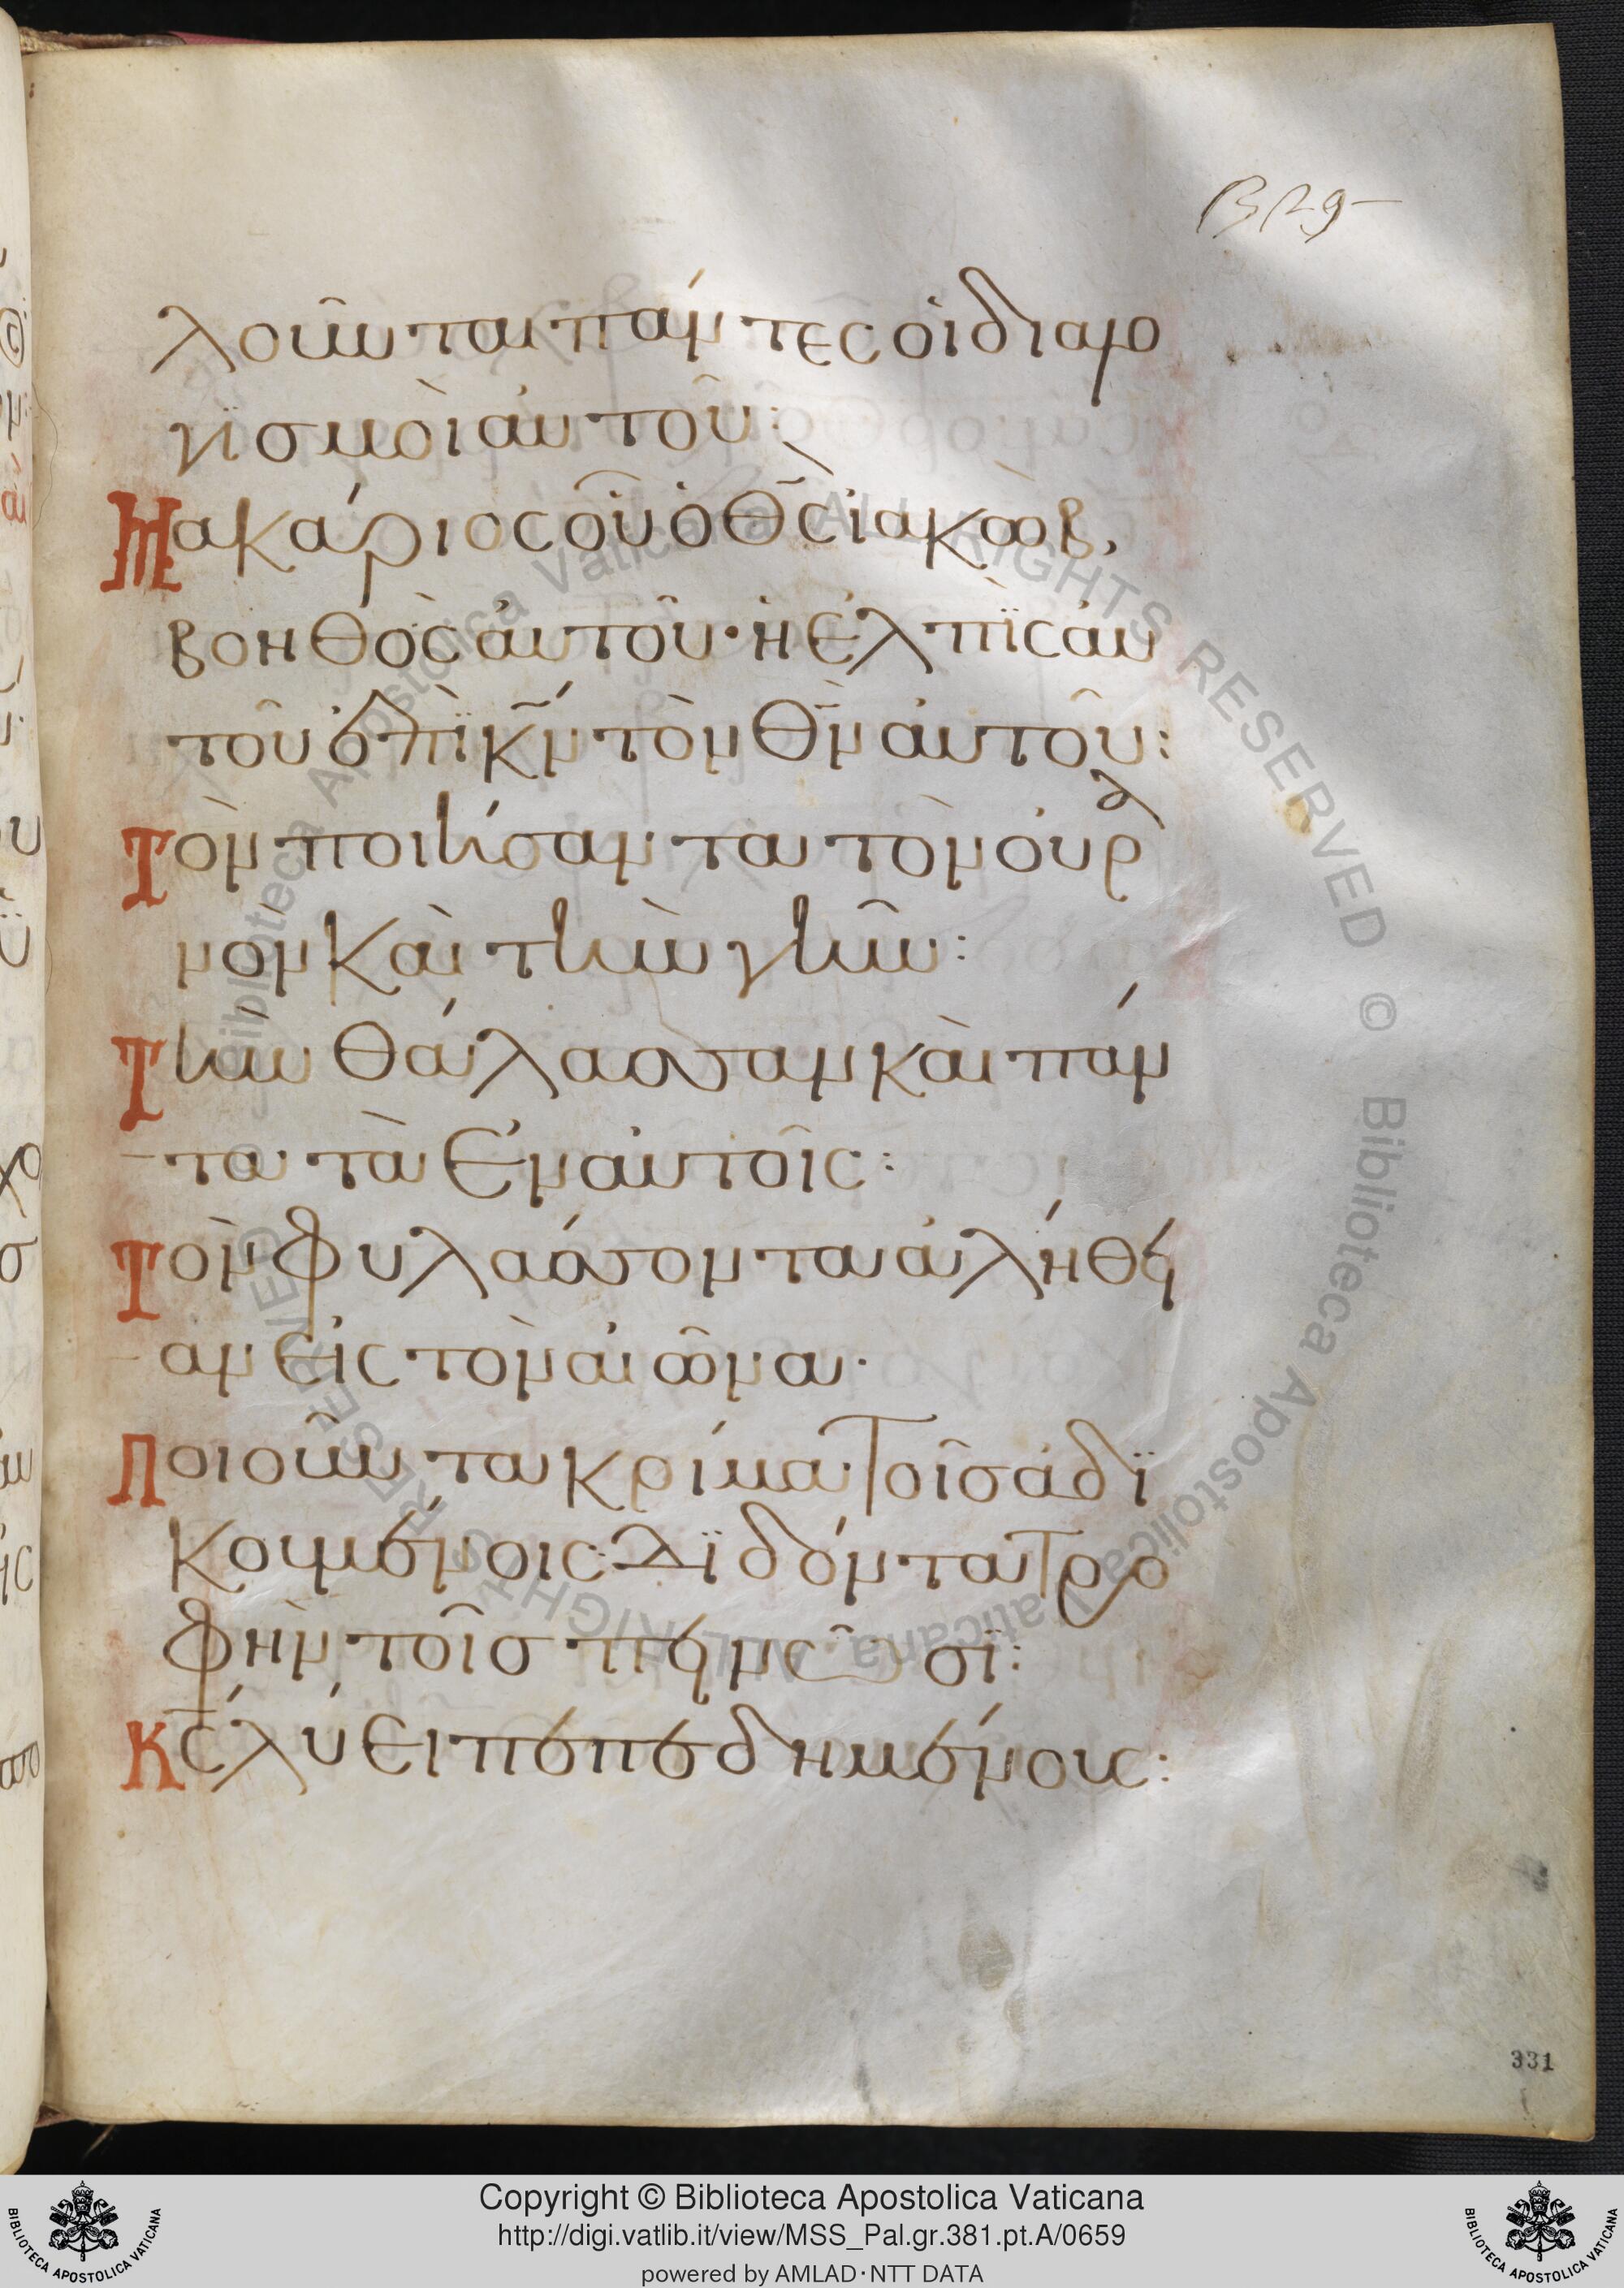 λοῦνται πάντες οἱ διαλο
γϊσμοὶ αὐτοῦ:
Μακάριος οὗ ὁ θ̅ς̅ ἰακὼβ,
βοηθὸς αὐτοῦ· ἡ ἐλπῒς αὐ
τοῦ ἐπῒ κ̅ν̅ τὸν θ̅ν̅ αὐτοῦ:
Τὸν ποιήσαντα τὸν οὐρα
νὸν καὶ τὴν γῆν:
Τὴν θάλασσαν καὶ πάν
τα τὰ ἐν αὐτοῖς:
Τὸν φυλάσσοντα ἀλήθει
αν εἰς τὸν αἰῶνα·
Ποιοῦντα κρίμα τοῖς ἀδϊ
κουμένοις: Δϊδόντα τρο
φὴν τοῖς πεινῶσϊ:
Κ̅ς̅ λύει πεπεδημένους:
331
Copyright © Biblioteca Apostolica Vaticana
http://digi.vatlib.it/view/MSS_Pal.gr.381.pt.A/0659
powered by AMLAD·NTT DATA
BIBLIOTECA APOSTOLICA VATICANA
BIBLIOTECA APOSTOLICA VATICANA